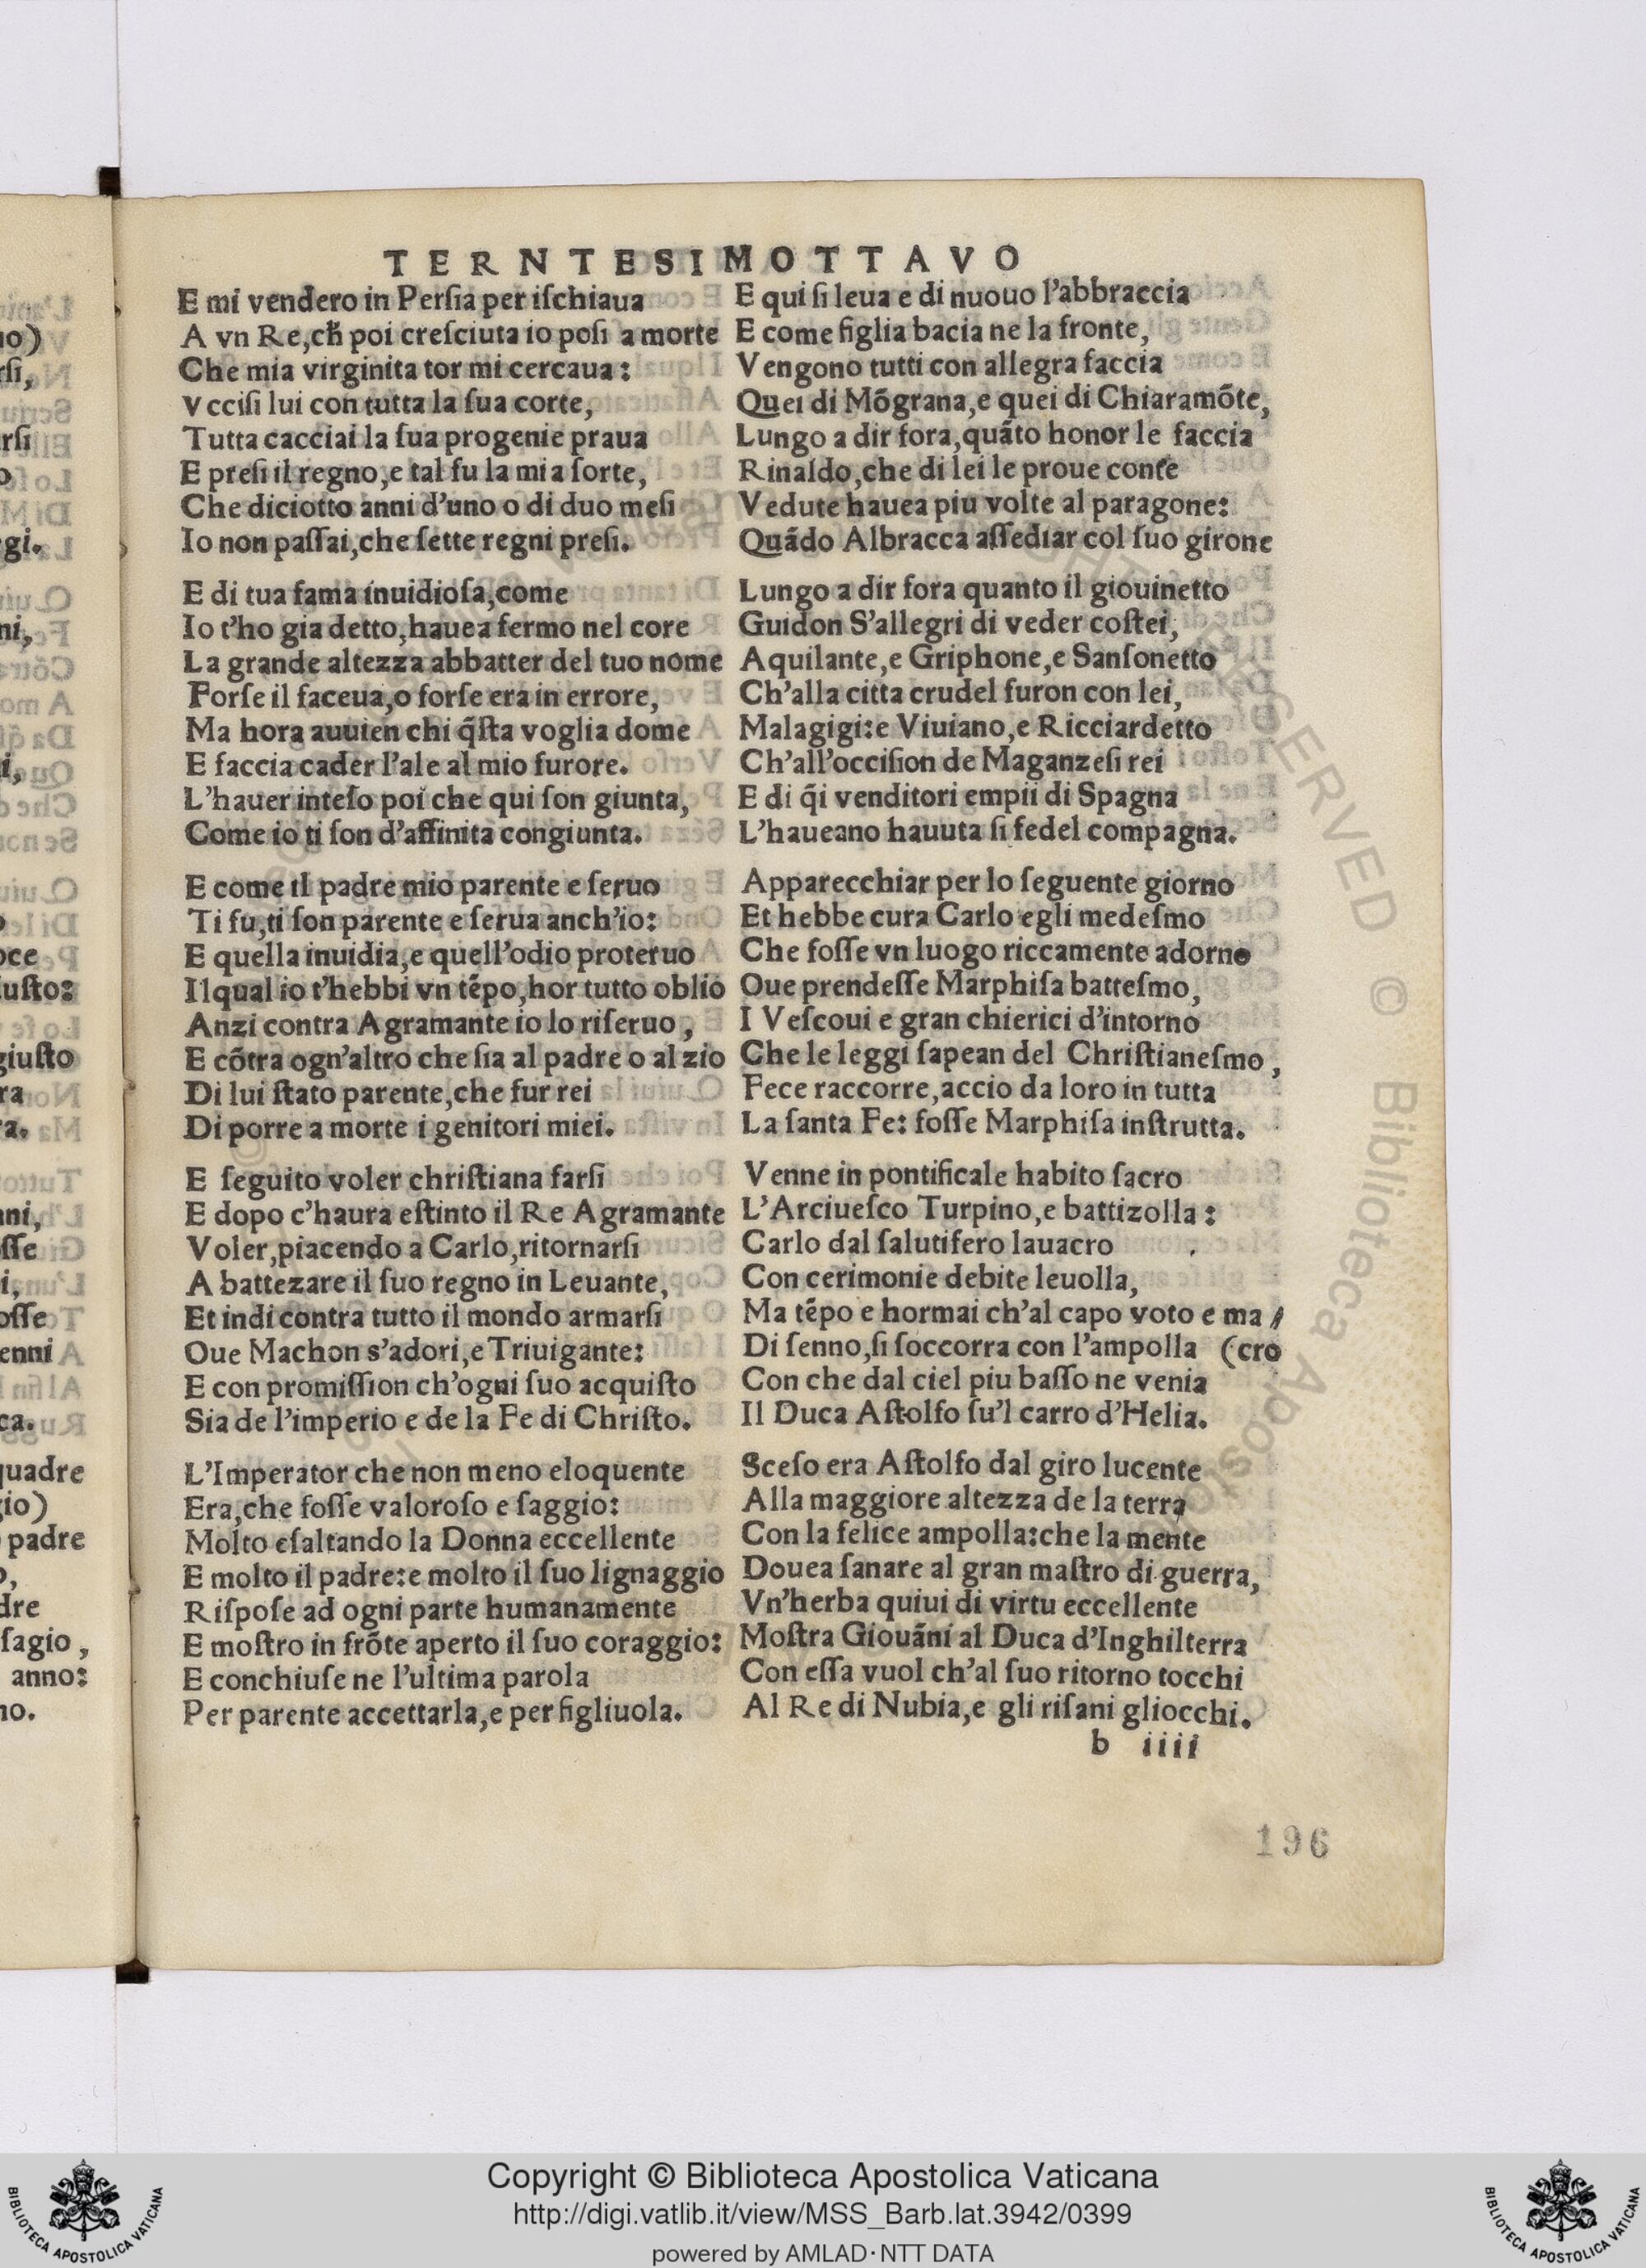 TERNTESIMOTTAVO
E mi vendero in Perſia per iſchiaua
A vn Re,ch̃ poi creſciuta io poſi a morte
Che mia virginita tor mi cercaua:
Vcciſi lui con tutta la ſua corte,
Tutta cacciai la ſua progenie praua
E preſi il regno,e tal fu la mia ſorte,
Che diciotto anni d'uno o di duo meſi
Io non paſſai,che ſette regni preſi.
E di tua fama inuidioſa,come
Io t'ho gia detto,hauea fermo nel core
La grande altezza abbatter del tuo nome
Forſe il faceua,o forſe era in errore,
Ma hora auuien chi q̃ſta voglia dome
E faccia cader l'ale al mio furore.
L'hauer inteſo poi che qui ſon giunta,
Come io ti ſon d'affinita congiunta.
E come il padre mio parente e ſeruo
Ti fu,ti ſon parente e ſerua anch'io:
E quella inuidia,e quell'odio proteruo
Ilqual io t'hebbi vn tẽpo,hor tutto oblio
Anzi contra Agramante io lo riſeruo,
E cõtra ogn'altro che ſia al padre o al zio
Di lui ſtato parente,che fur rei
Di porre a morte i genitori miei.
E ſeguito voler chriſtiana farſi
E dopo c'haura eſtinto il Re Agramante
Voler,piacendo a Carlo,ritornarſi
A battezare il ſuo regno in Leuante,
Et indi contra tutto il mondo armarſi
Oue Machon s'adori,e Triuigante:
E con promiſſion ch'ogni ſuo acquiſto
Sia de l'imperio e de la Fe di Chriſto.
L'Imperator che non meno eloquente
Era,che foſſe valoroſo e ſaggio:
Molto eſaltando la Donna eccellente
E molto il padre:e molto il ſuo lignaggio
Riſpoſe ad ogni parte humanamente
E moſtro in frõte aperto il ſuo coraggio:
E conchiuſe ne l'ultima parola
Per parente accettarla,e per figliuola.
E qui ſi leua e di nuouo l'abbraccia
E come figlia bacia ne la fronte,
Vengono tutti con allegra faccia
Quei di Mõgrana,e quei di Chiaramõte,
Lungo a dir fora,quãto honor le faccia
Rinaldo,che di lei le proue conte
Vedute hauea piu volte al paragone:
Quãdo Albracca aſſediar col ſuo girone
Lungo a dir fora quanto il giouinetto
Guidon S'allegri di veder coſtei,
Aquilante,e Griphone,e Sanſonetto
Ch'alla citta crudel furon con lei,
Malagigi:e Viuiano,e Ricciardetto
Ch'all'occiſion de Maganzeſi rei
E di q̃i venditori empii di Spagna
L'haueano hauuta ſi fedel compagna.
Apparecchiar per lo ſeguente giorno
Et hebbe cura Carlo egli medeſmo
Che foſſe vn luogo riccamente adorno
Oue prendeſſe Marphiſa batteſmo,
I Veſcoui e gran chierici d'intorno
Che le leggi ſapean del Chriſtianeſmo,
Fece raccorre,accio da loro in tutta
La ſanta Fe: foſſe Marphiſa inſtrutta.
Venne in pontificale habito ſacro
L'Arciueſco Turpino,e battizolla:
Carlo dal ſalutifero lauacro
Con cerimonie debite leuolla,
Ma tẽpo e hormai ch'al capo voto e ma/
Di ſenno,ſi ſoccorra con l'ampolla (cro
Con che dal ciel piu baſſo ne venia
Il Duca Aſtolfo ſu'l carro d'Helia.
Sceſo era Aſtolfo dal giro lucente
Alla maggiore altezza de la terra
Con la felice ampolla:che la mente
Douea ſanare al gran maſtro di guerra,
Vn'herba quiui di virtu eccellente
Moſtra Giouãni al Duca d'Inghilterra
Con eſſa vuol ch'al ſuo ritorno tocchi
Al Re di Nubia,e gli riſani gliocchi.
b iiii
196
Copyright © Biblioteca Apostolica Vaticana
http://digi.vatlib.it/view/MSS_Barb.lat.3942/0399
powered by AMLAD·NTT DATA
BIBLIOTECA APOSTOLICA VATICANA
BIBLIOTECA APOSTOLICA VATICANA